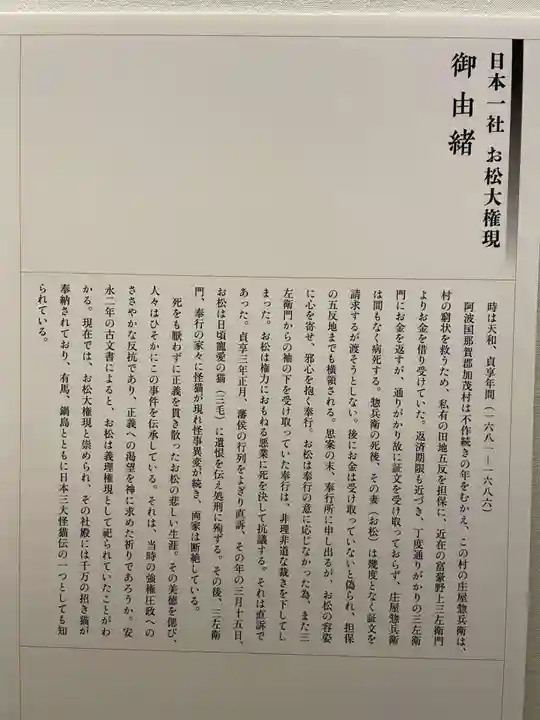 日本一社 お松大権現
御由緒
時は天和、貞享年間（一六八一―一六八六）
阿波国那賀郡加茂村は不作続きの年をむかえ、この村の庄屋惣兵衛は、
村の窮状を救うため、私有の田地五反を担保に、近在の富豪野上三左衛門
よりお金を借り受けていた。返済期限も近づき、丁度通りがかりの三左衛
門にお金を返すが、通りがかり故に証文を受け取っておらず、庄屋惣兵衛
は間もなく病死する。惣兵衛の死後、その妻（お松）は幾度となく証文を
請求するが渡そうとしない。後にお金は受け取っていないと偽られ、担保
の五反地までも横領される。思案の末、奉行所に申し出るが、お松の容姿
に心を寄せ、邪心を抱く奉行。お松は奉行の意に応じなかった為、また三
左衛門からの袖の下を受け取っていた奉行は、非理非道な裁きを下してし
まった。お松は権力におもねる悪業に死を決して抗議する。それは直訴で
あった。貞享三年正月、藩侯の行列をよぎり直訴、その年の三月十五日、
お松は日頃寵愛の猫（三毛）に遺恨を伝え処刑に殉ずる。その後、三左衛
門、奉行の家々に怪猫が現れ怪事異変が続き、両家は断絶している。
死をも厭わずに正義を貫き散ったお松の悲しい生涯。その美徳を偲び、
人々はひそかにこの事件を伝承している。それは、当時の強権圧政への
ささやかな反抗であり、正義への渇望を神に求めた祈りであろうか。安
永二年の古文書によると、お松は義理権現として祀られていたことがわ
かる。現在では、お松大権現と崇められ、その社殿には千万の招き猫が
奉納されており、有馬、鍋島とともに日本三大怪猫伝の一つとしても知
られている。